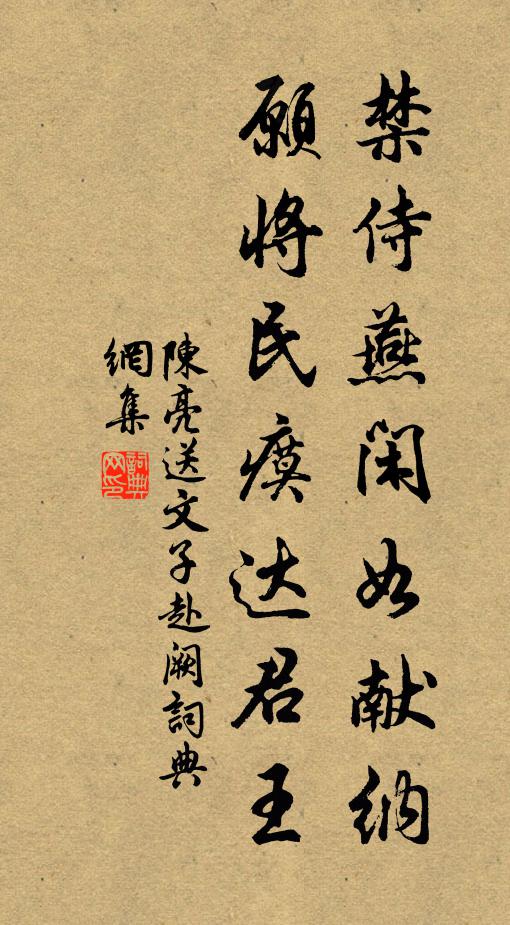 禁侍燕闲如献纳
願将民瘼达君王
陳亮送文子赴阙詞典
網集
詞典网印